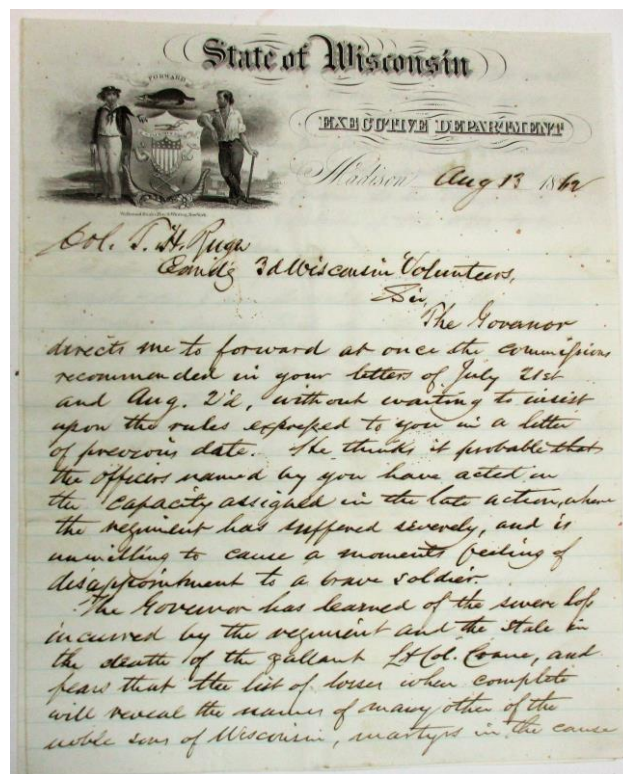 State of Wisconsin
FORWARD
EXECUTIVE DEPARTMENT
Madison Aug 13 1862
Col. T. H. Ruger
Comd'g 3d Wisconsin Volunteers,
Sir,
The Govenor
directs me to forward at once the commissions
recommended in your letters of July 21st
and Aug. 2'd, without waiting to insist
upon the rules expressed to you in a letter
of prevoious date. He thinks it probable that
the officers named by you have acted in
the capacity assigned in the late action, where
the regiment has suffered severely, and is
unwilling to cause a moments feeling of
disappointment to a brave soldier.
The Governor has learned of the severe loss
incurred by the regiment and the state in
the death of the gallant Lt Col. Crane, and
fears that the list of losses when complete
will reveal the names of many other of the
noble sons of Wisconsin, martyrs in the cause